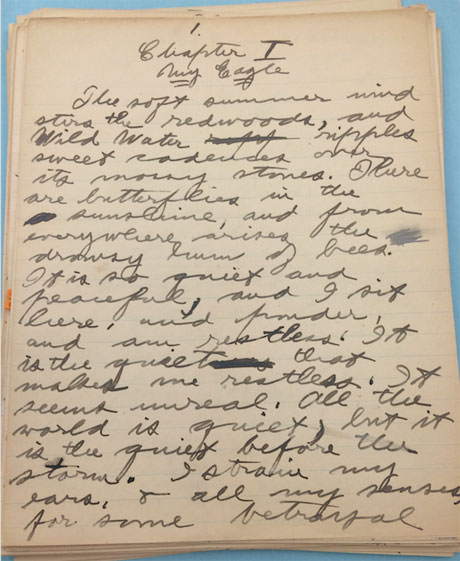 1.
Chapter I
My Eagle
The soft summer wind
stirs the redwoods, and
Wild Water ripples
sweet cadences over
its mossy stones. There
are butterflies in the
sunshine, and from
everywhere arises the
drowsy hum of bees.
It is so quiet and
peaceful, and I sit
here, and ponder,
and am restless. It
is the quiet that
makes me restless. It
seems unreal. All the
world is quiet, but it
is the quiet before the
storm. I strain my
ears, & all my senses,
for some betrayal